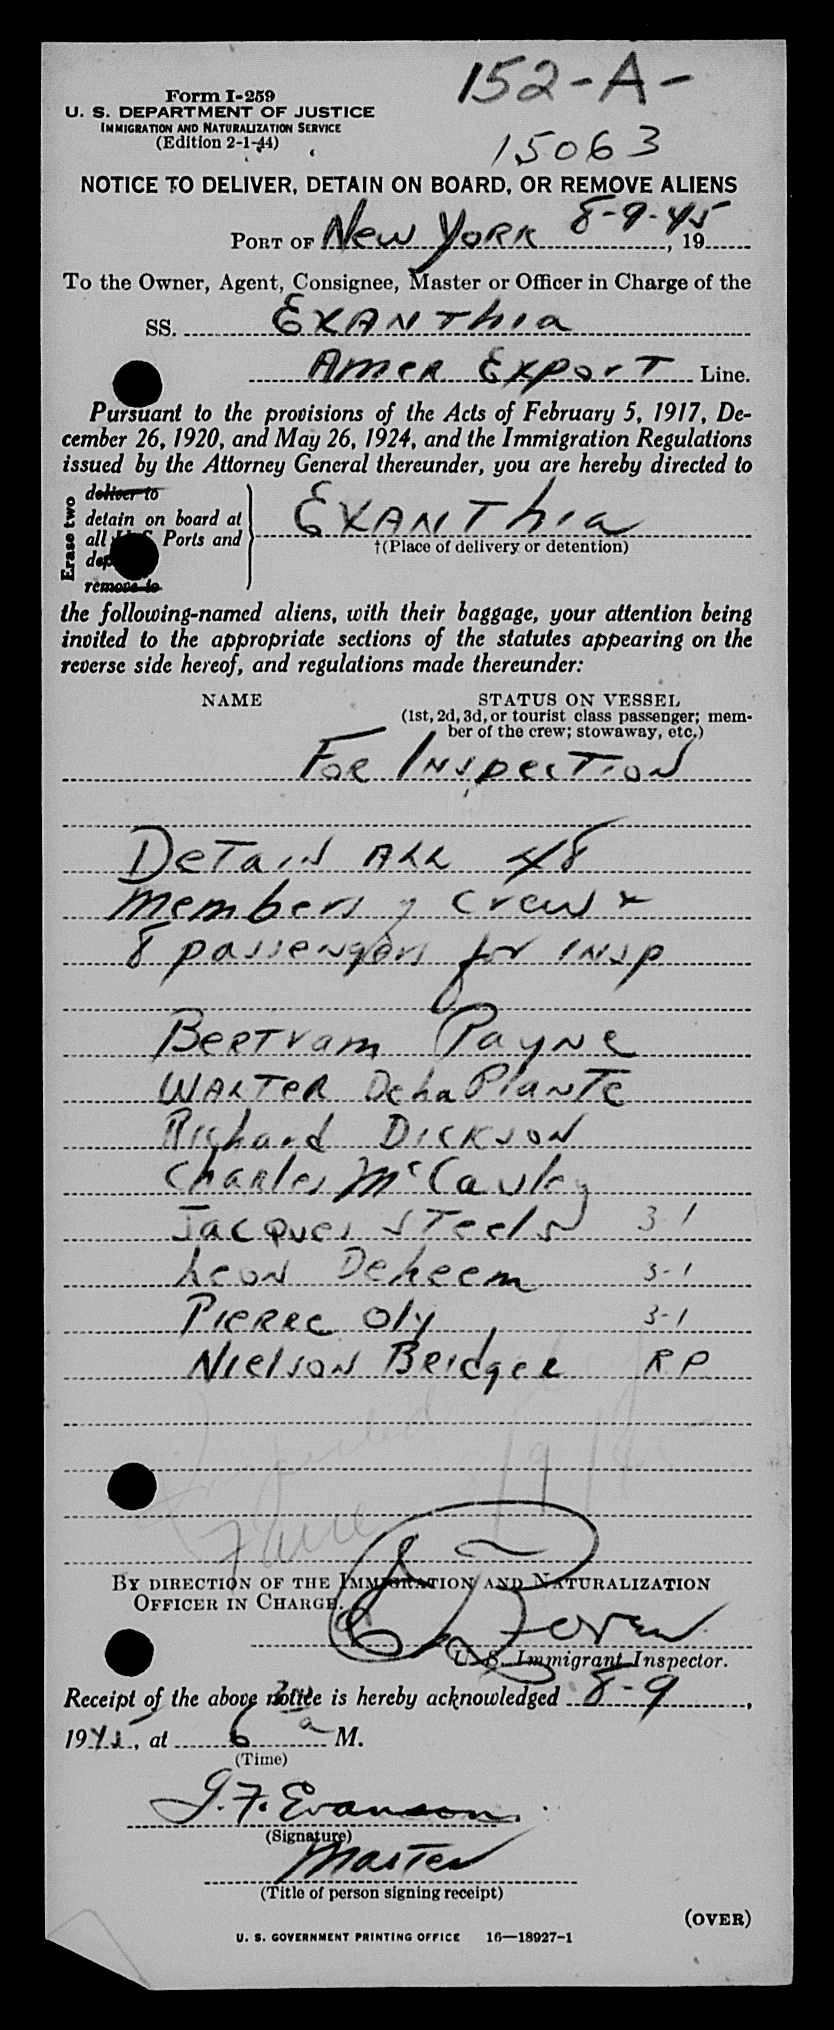 152-A-
Form I-259
U. S. DEPARTMENT OF JUSTICE
IMMIGRATION AND NATURALIZATION SERVICE
(Edition 2-1-44)
15063
NOTICE TO DELIVER, DETAIN ON BOARD, OR REMOVE ALIENS
PORT OF New York 8-9-45, 19
To the Owner, Agent, Consignee, Master or Officer in Charge of the
SS. Exanthia
Amer Export Line.
Pursuant to the provisions of the Acts of February 5, 1917, De-
cember 26, 1920, and May 26, 1924, and the Immigration Regulations
issued by the Attorney General thereunder, you are hereby directed to
Erase two
deliver to
detain on board at
all U.S. Ports and
remove to
Exanthia
†(Place of delivery or detention)
the following-named aliens, with their baggage, your attention being
invited to the appropriate sections of the statutes appearing on the
reverse side hereof, and regulations made thereunder:
NAME STATUS ON VESSEL
(1st, 2d, 3d, or tourist class passenger; mem-
ber of the crew; stowaway, etc.)
For Inspection
Detain All 48
members of crew &
8 passengers for insp
Bertram Payne
Walter DeLaPlante
Richard Dickson
Charles McCauley
Jacques Steels 3-1
Leon Deheem 3-1
Pierre Oly 3-1
Nielson Bridger R P
BY DIRECTION OF THE IMMIGRATION AND NATURALIZATION
OFFICER IN CHARGE.
U. S. Immigrant Inspector.
Receipt of the above notice is hereby acknowledged 8-9,
1945, at 6 a M.
(Time)
J. F. Evanson
(Signature)
Master
(Title of person signing receipt)
(OVER)
U. S. GOVERNMENT PRINTING OFFICE 16—18927-1